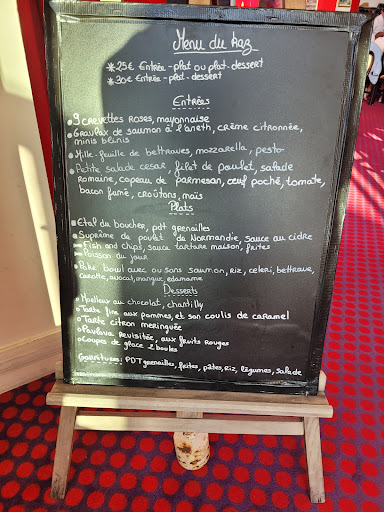 Menu du kaz
* 25€ Entrée - plat ou plat - dessert
* 30€ Entrée - plat - dessert
Entrées
• 9 crevettes roses, mayonnaise
• Gravlax de saumon à l'aneth, crème citronnée,
minis blinis
• Mille-feuille de bettraves, mozzarella, pesto
• Petite salade cesar, filet de poulet, salade
Romaine, copeau de parmesan, oeuf poché, tomate,
bacon fumé, croûtons, maïs
Plats
• Etal du boucher, pdt grenailles
• Suprême de poulet de Normandie, sauce au cidre
• Fish and chips, sauce tartare maison, frites
• Poisson du jour
• Poke bowl avec ou sans saumon, riz, celeri, bettrave,
carotte, avocat, mangue, edamame
Desserts
• Moelleux au chocolat, chantilly
• Tarte fine aux pommes, et son coulis de caramel
• Tarte citron meringuée
• Pavlova revisitée, aux fruits rouges
• Coupes de glace 2 boules
Garnitures: PDT grenailles, frites, pâtes, riz, légumes, salade